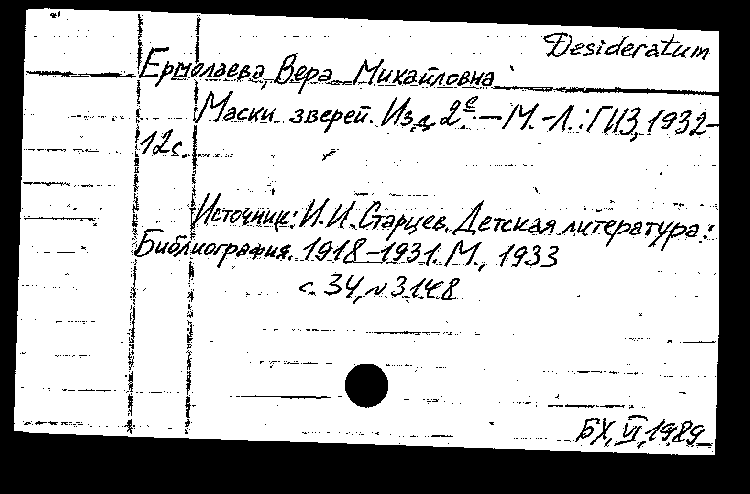 Desideratum
Ермолаева, Вера Михайловна
Маски зверей. Изд. 2е. — М.-Л.: ГИЗ, 1932-
12с.
Источник: И.И. Старцев. Детская литература:
Библиография. 1918-1931. М., 1933
с. 34, № 3148
БХ, VI, 1989